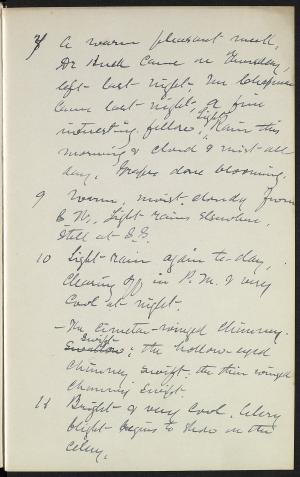 A warm pleasant week.
Dr Buck came on Thursday,
left last night, Mr Chapman
came last night, a fine
interesting fellow, Light
Rain this
morning & cloud & mist all
day, Grapes done blooming.
9 Warm, moist cloudy from
E W., Light rains elsewhere.
Still at
10 Light rain again to-day,
Clearing off in P.M. & very
Cool at night.
- The cimeter-winged chimney
Swift
Swallow; the hollow-eyed
chimney swift, the thin winged
chimney swift.
18 Bright & very cool. Celery
blight begins to show on the
Celery.